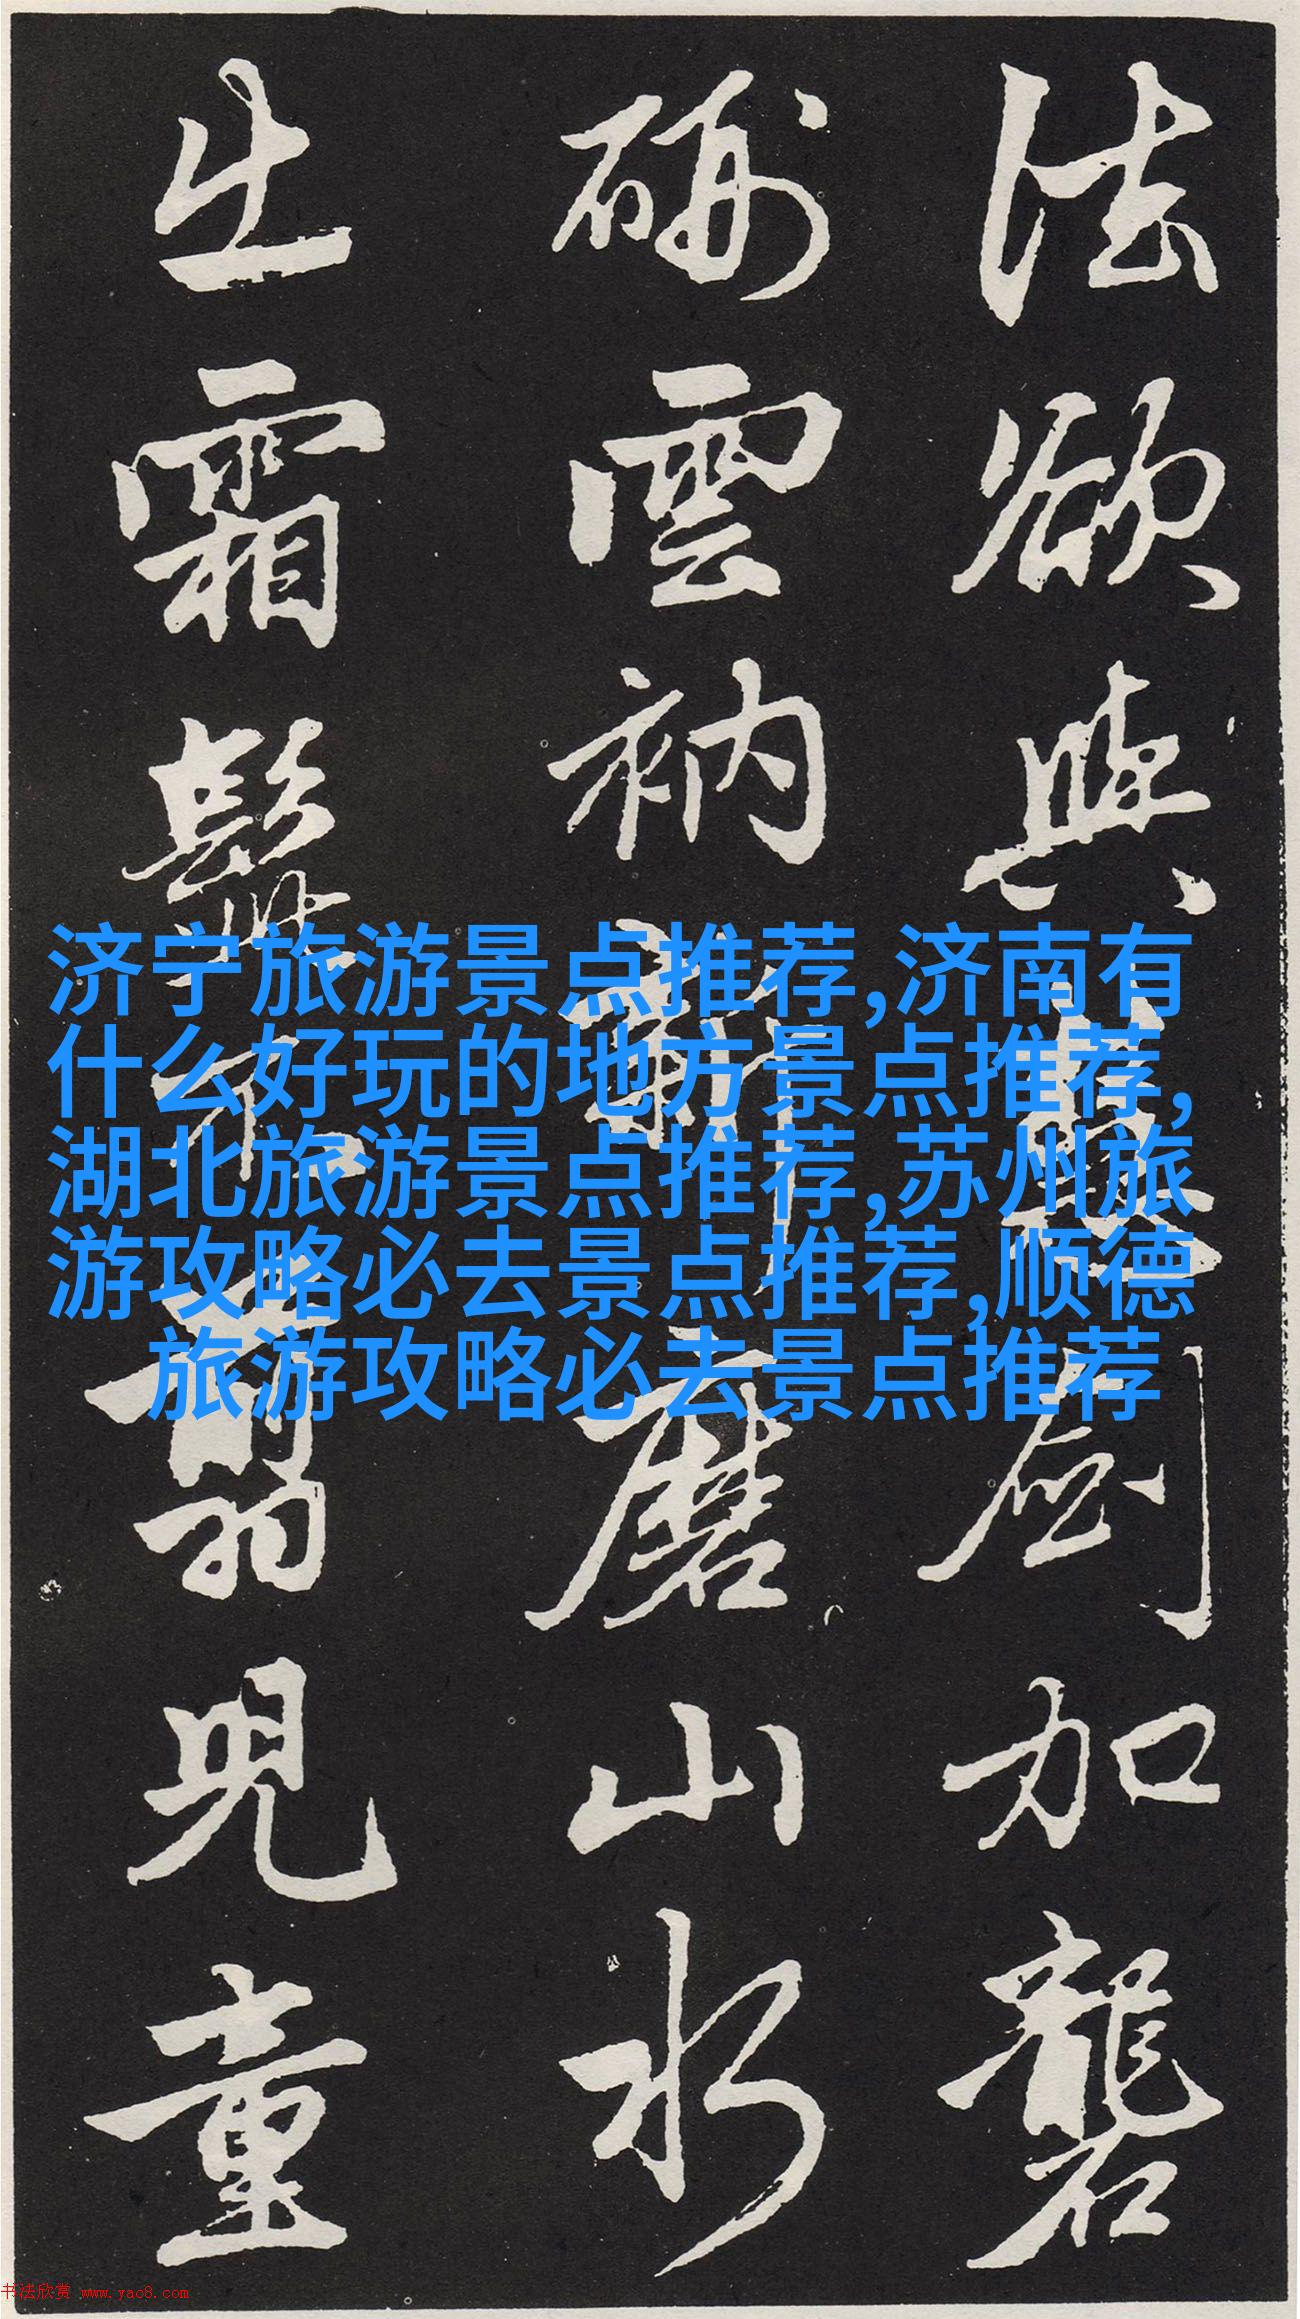 法欲與其慧劍加礱
硎雲衲新磨山水
出霜鬢不翦兒童
济宁旅游景点推荐,济南有
什么好玩的地方景点推荐,
湖北旅游景点推荐,苏州旅
游攻略必去景点推荐,顺德
旅游攻略必去景点推荐
书法欣赏 www.yac8.com